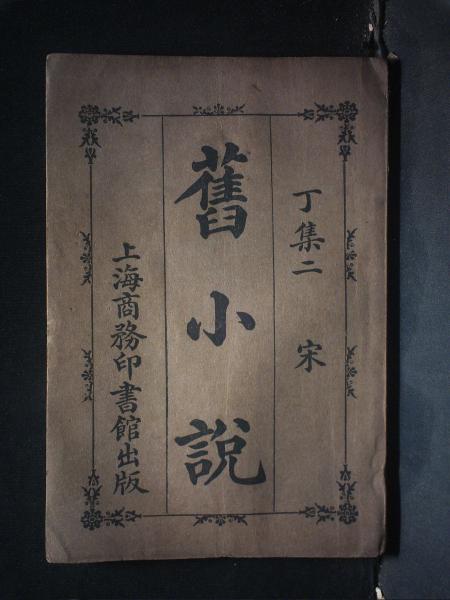 丁集二 宋
舊小說
上海商務印書館出版